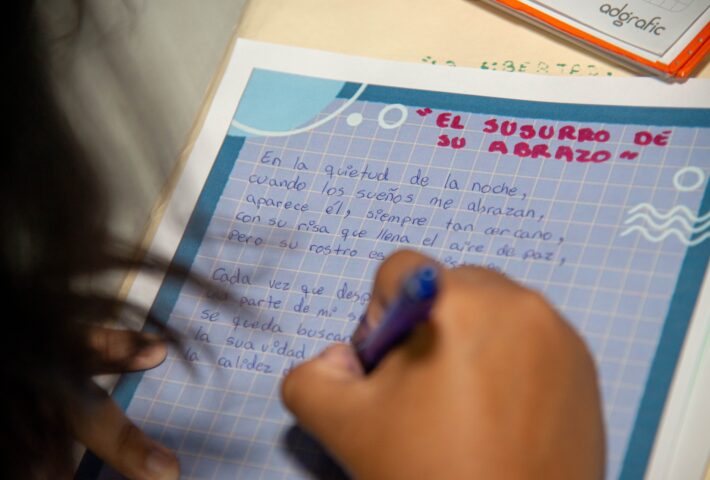 adgrafic
LIBERTAD
"EL SUSURRO DE
SU ABRAZO"
En la quietud de la noche,
cuando los sueños me abrazan,
aparece él, siempre tan cercano,
con su risa que llena el aire de paz,
pero su rostro es
Cada vez que
parte de mi
se queda
la suavidad
la calidez